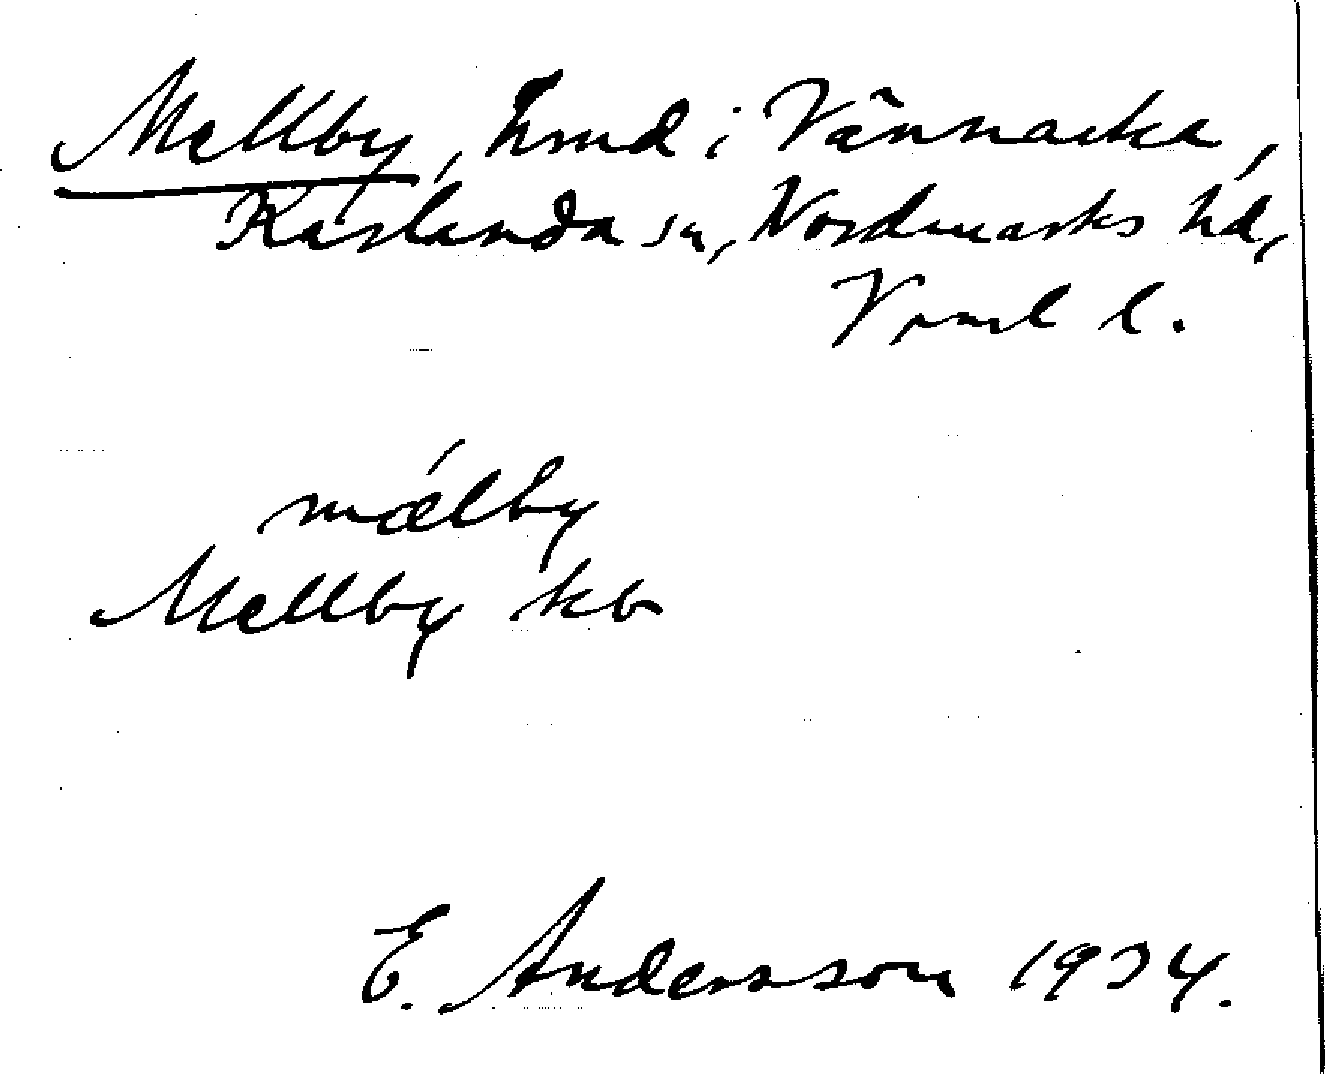 Mellby, hmd i Vännacka,
Karlanda sn, Nordmarks hd,
Vrml l.
mǽlby
Mellby kb
E. Andersson 1934.